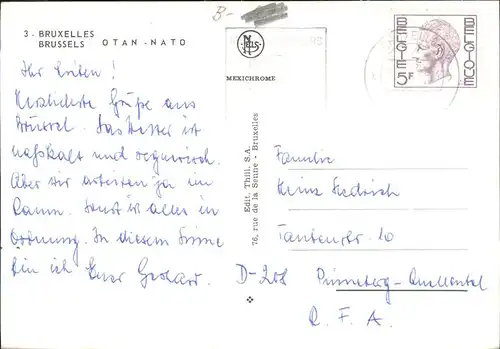 B-
3 - BRUXELLES
BRUSSELS OTAN - NATO
NELS
MEXICHROME
BELGIE BELGIQUE
5F
Ihr Lieben!
Herzlichste Grüße aus
Brüssel. Das Wetter ist
naßkalt und regnerisch.
Aber wir arbeiten ja im
Raum. Sonst ist alles in
Ordnung. In diesem Sinne
bin ich Euer Gerhard.
Edit. Thill, S.A.
76, rue de la Senne - Bruxelles
Familie
Heinz Friedrich
Tantenstr. 10
D-208 Pinneberg-Quellental
R. F. A.